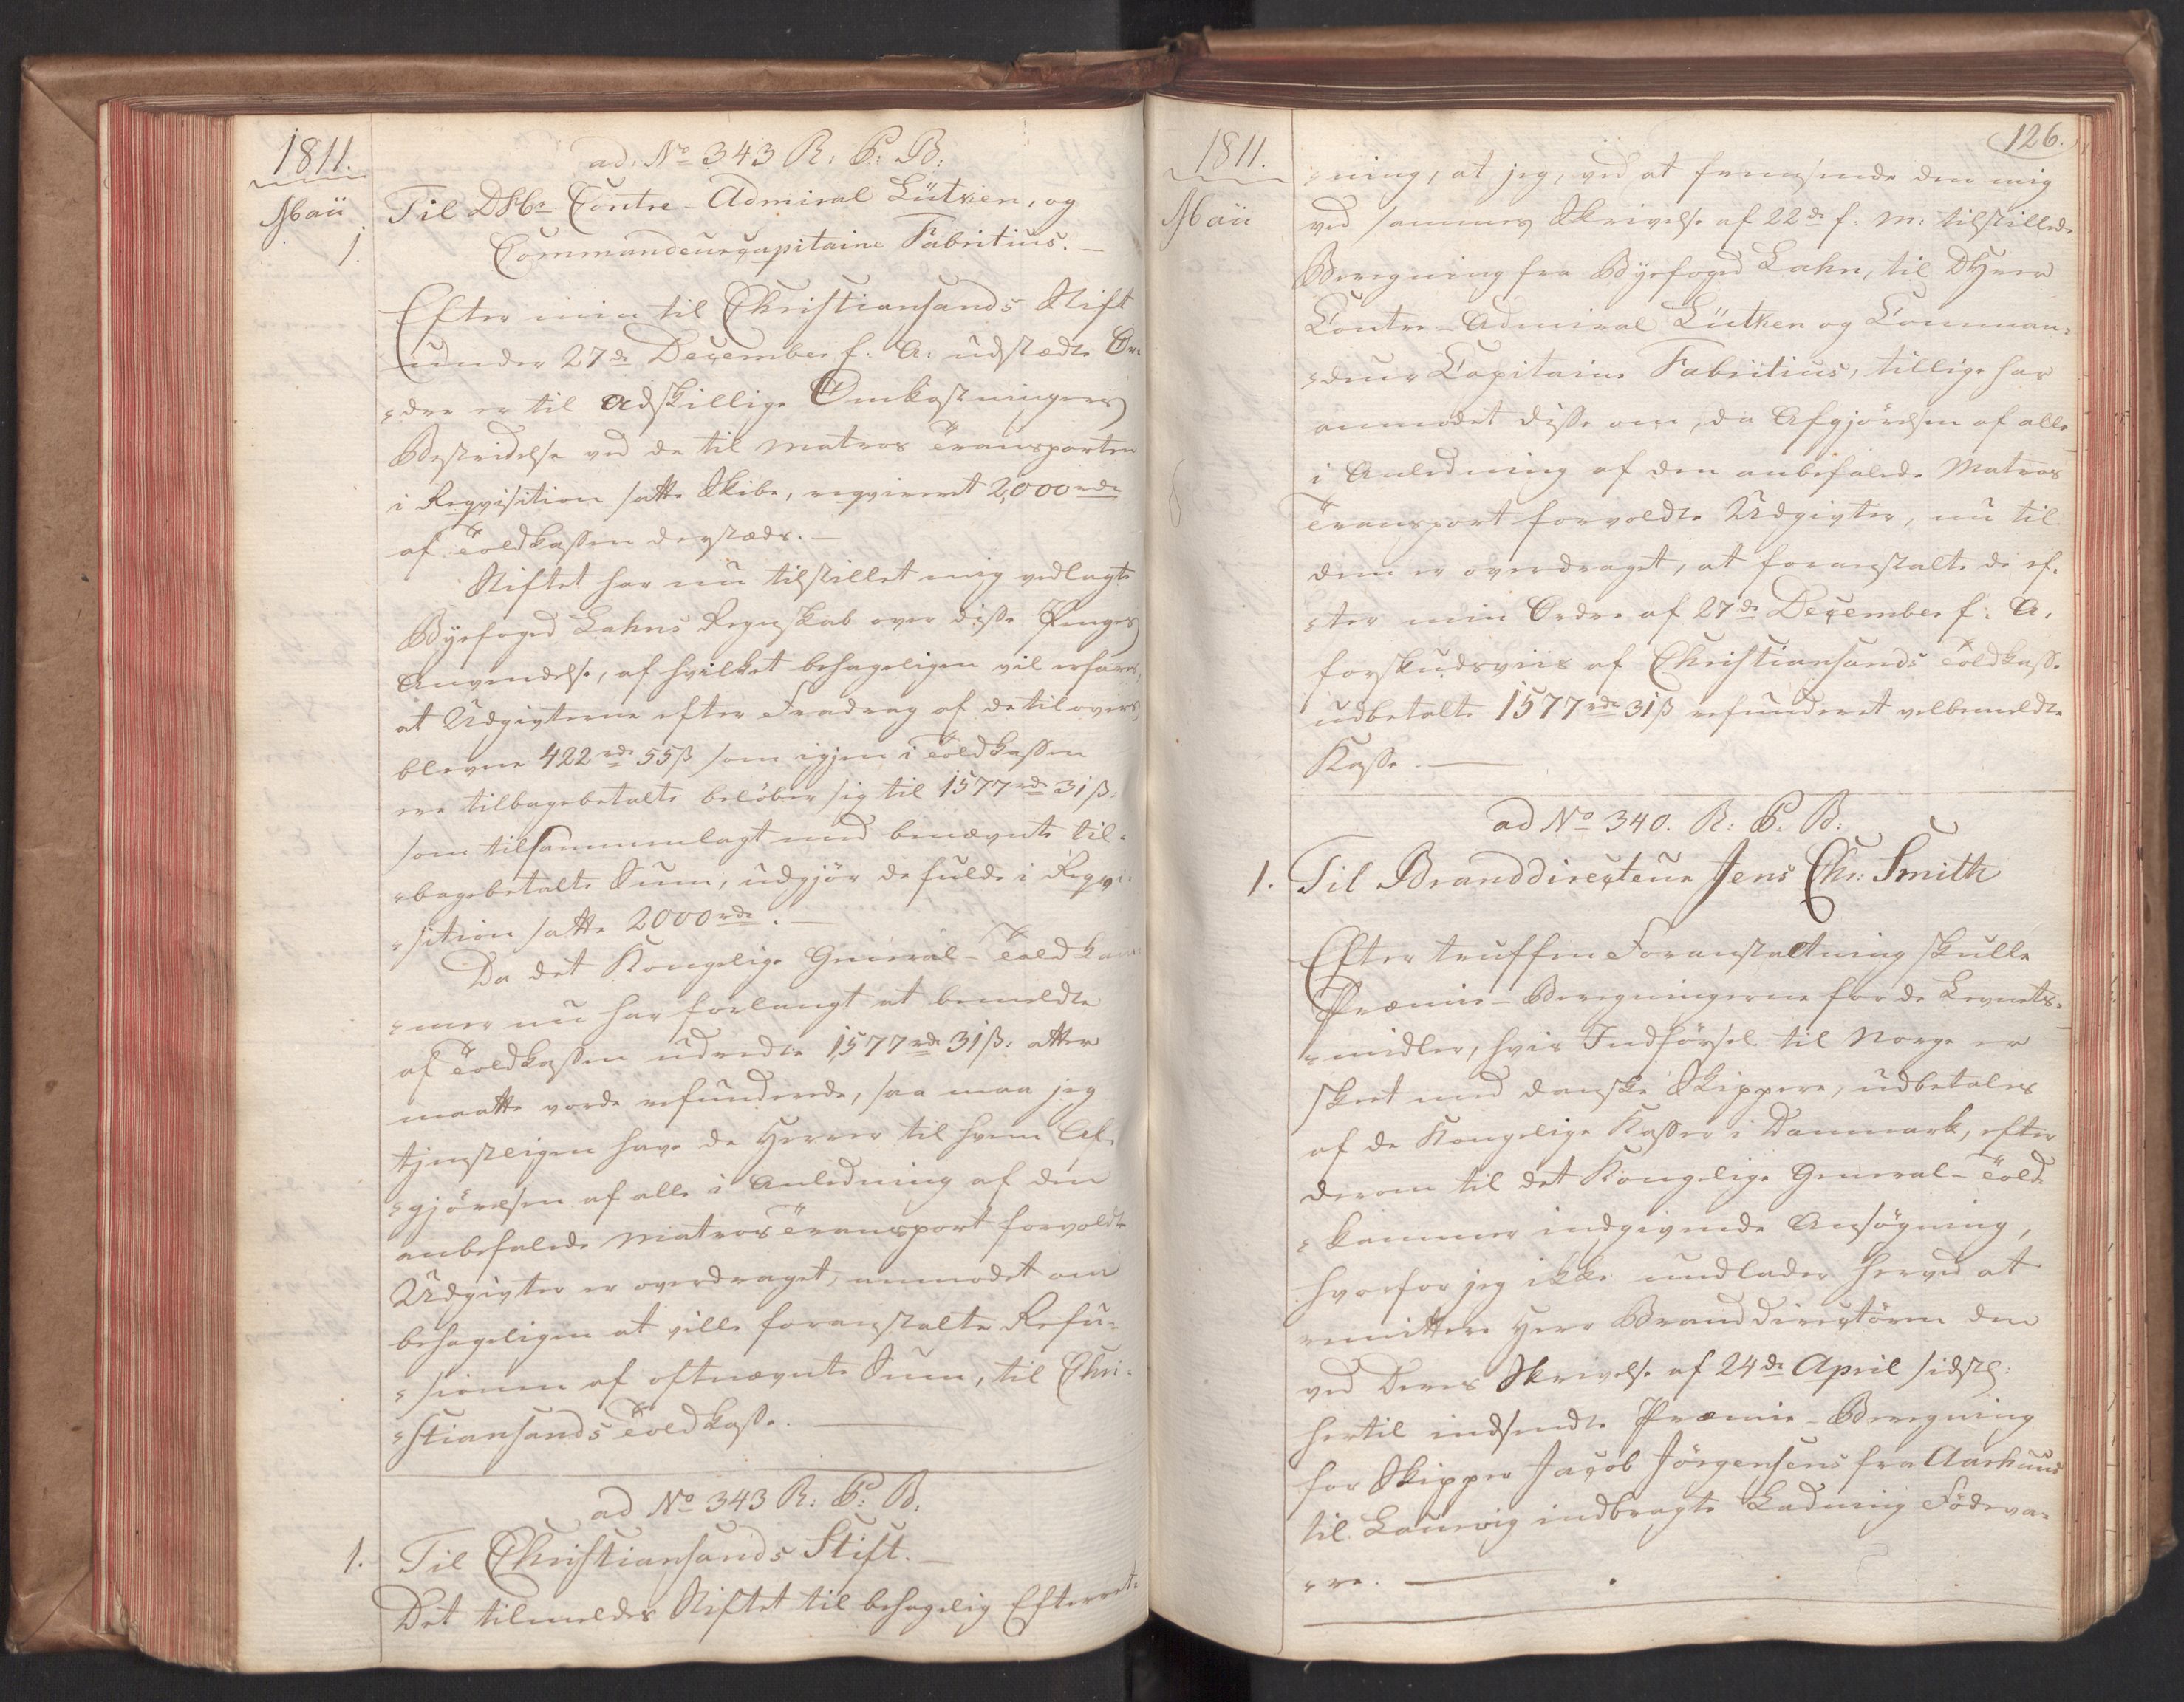 1811.
Maii
1.
ad. No 343 R: P: B:
Til DHr. Contre-Admiral Lütken, og
Commandeurcapitaine Fabritius.
Efter min til Christiansands Stift
under 27de December f. A: udstædte Or-
dre er til adskillige Omkostningers
Bestridelse ved de til Matros Transporten
i Reqvisition satte Skibe, reqvireret 2,000 rd.
af Toldkassen dersteds.
Stiftet har nu tilstillet mig vedlagte
Byefoged Lahns Regnskab over disse Penges
Anvendelse, af hvilket behageligen vil erfares,
at Udgivterne efter Fradrag af de tilovers
blevne 422 rd 55 ß som igjen i Toldkassen
ere tilbagebetalte beløber sig til 1577 rd 31 ß.
som tilsammenlagt med benævnte til-
bagebetalte Sum, udgjør de fulde i Reqvi-
sition satte 2000 rd.
Da det Kongelige General-Toldkam-
mer nu har forlangt at bemeldte
af Toldkassen udredte 1577 rd 31 ß: atter
maatte vorde refunderede, saa maa jeg
tjenstligen have de Herrer til hvem Af-
gjørelsen af alle i Anledning af den
anbefalede Matros Transport forvoldte
Udgivter er overdraget, anmodet om
behageligen at ville foranstalte Refu-
sionen af oftnævnte Sum, til Chri-
stiansands Toldkasse.
ad No 343 R: P: B:
1. Til Christiansands Stift.
Det tilmeldes Stiftet til behagelig Efterret-
126.
1811.
Maii
ning, at jeg, ved at fremsende den mig
ved sammes Skrivelse af 22de f. M: tilstillede
Beregning fra Byefoged Lahn, til DHerr
Contre-Admiral Lütken og Comman-
deur Capitaine Fabritius, tillige har
anmodet disse om, da Afgjørelsen af alle
i Anledning af den anbefalede Matros
Transport forvoldte Udgivter, nu til
dem er overdraget, at foranstalte de ef-
ter min Ordre af 27de December f: A.
forskudsviis af Christiansands Toldkasse
udbetalte 1577 rd 31 ß refunderet velbemeldte
Kasse.
ad No 340. R: P. B:
1. Til Branddirecteur Jens Chr: Smith
Efter truffen Foranstaltning skulle
Præmie-Beregningerne for de Levnets-
midler, hvis Indførsel til Norge er
skeet med danske Skippere, udbetales
af de Kongelige Kasser i Danmark, efter
derom til det Kongelige General-Told-
kammer indgivende Ansøgning,
hvorfor jeg ikke undlader herved at
remittere Herr Branddirectøren den
ved Deres Skrivelse af 24de April sidstl:
hertil indsendte Præmie-Beregning
for Skipper Jacob Jørgensens fra Aarhuus
til Laurvig indbragte Ladning Fødeva-
re.